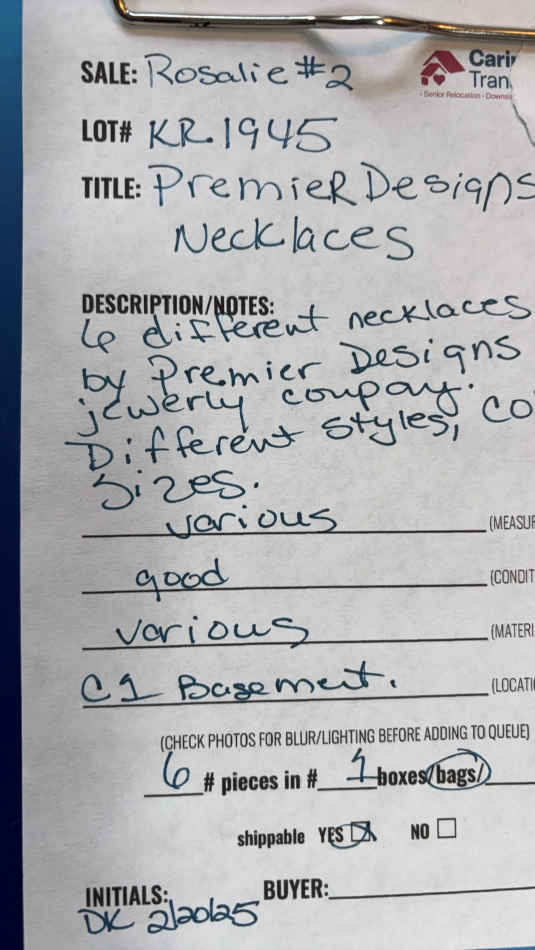 SALE: Rosalie #2
Cari
Tran
• Senior Relocation • Downsi
LOT# KR1945
TITLE: PremieR Designs
Necklaces
DESCRIPTION/NOTES:
6 different necklaces
by Premier Designs
jewerly coupay.
Different styles, co
Sizes.
various (MEASUR
good (CONDIT
various (MATERI
C1 Basement. (LOCATI
(CHECK PHOTOS FOR BLUR/LIGHTING BEFORE ADDING TO QUEUE)
6 # pieces in # 1 boxes/bags/
shippable YES NO
INITIALS: BUYER:
DK 2/20/25